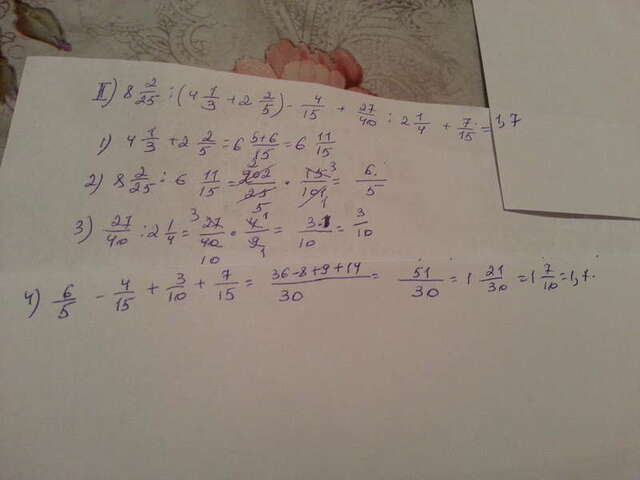 II) 8 2/25 : (4 1/3 + 2 2/5) - 4/15 + 27/40 : 2 1/4 + 7/15 = 1,7
1) 4 1/3 + 2 2/5 = 6 5+6/15 = 6 11/15
2) 8 2/25 : 6 11/15 = 202/25 · 15/101 = 6/5
3) 27/40 : 2 1/4 = 27/40 · 4/9 = 3·1/10 = 3/10
4) 6/5 - 4/15 + 3/10 + 7/15 = 36-8+9+14/30 = 51/30 = 1 21/30 = 1 7/10 = 1,7.